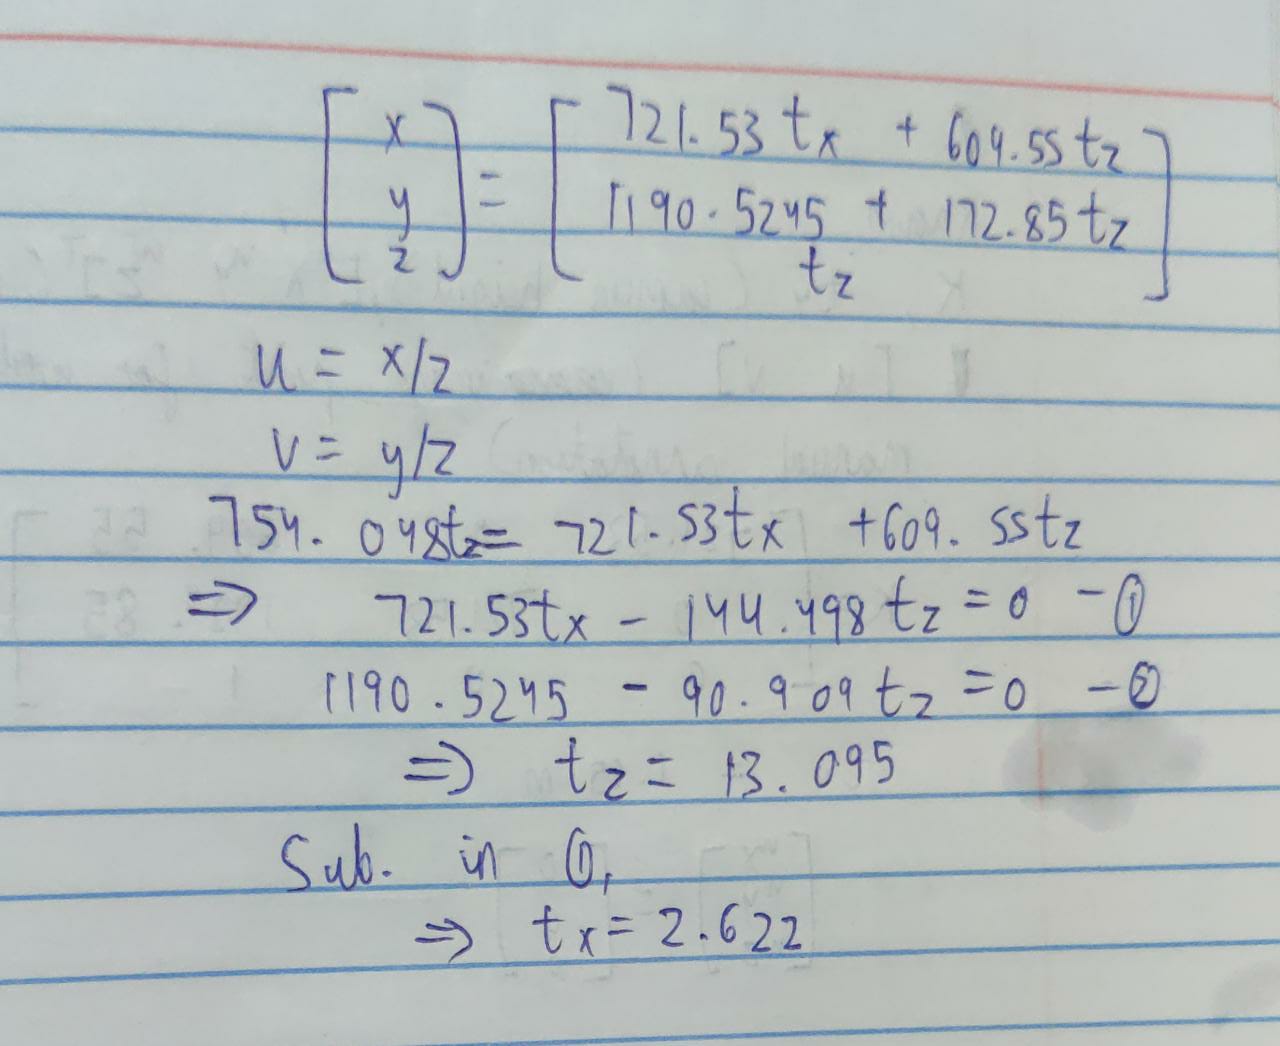 [x y z] = [721.53 tx + 609.55 tz
1190.5245 + 172.85 tz
tz]
u = x/z
v = y/z
754.048tz = 721.53tx + 609.55tz
⇒ 721.53tx - 144.498 tz = 0 - ①
1190.5245 - 90.909 tz = 0 - ②
⇒ tz = 13.095
Sub. in ①,
⇒ tx = 2.622